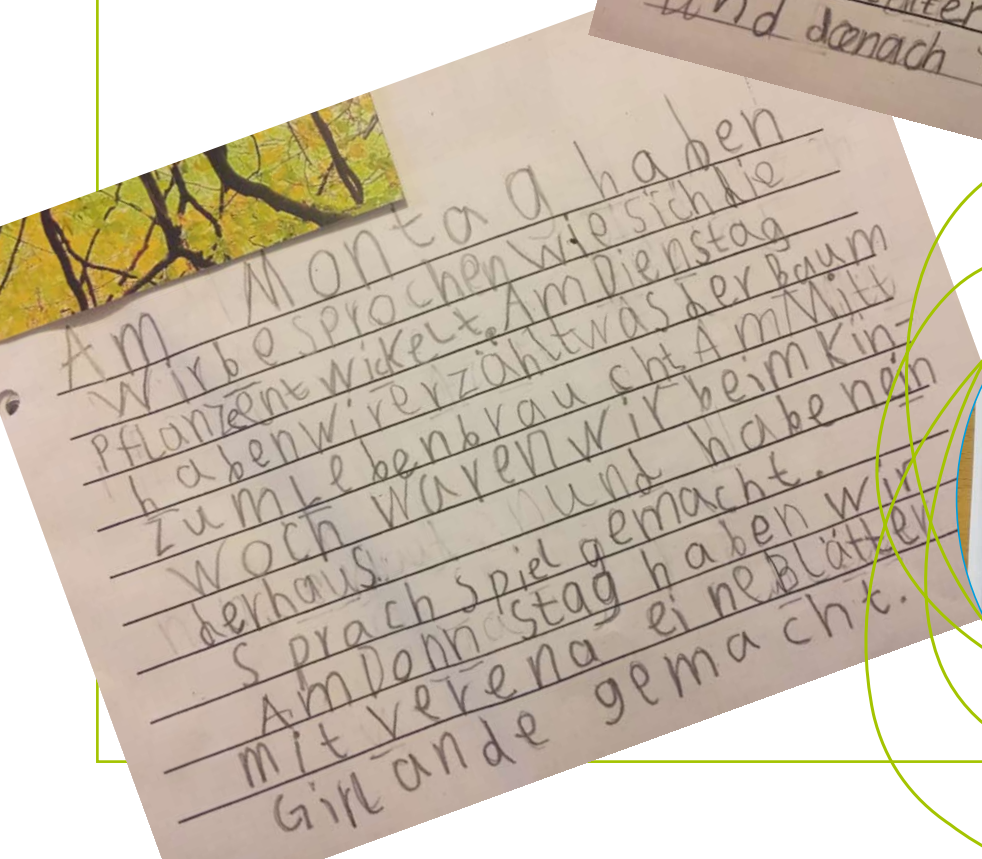 und danach
Am Montag haben
wir besprochen wie sich die
Pflanze entwickelt. Am Dienstag
haben wir erzählt was der Baum
zum Leben braucht Am Mitt
woch waren wir beim Kin-
derhaus. und haben ein
Sprach spiel gemacht.
Am Donnstag haben wir
mit verena eine Blätter
Girlande gemacht.